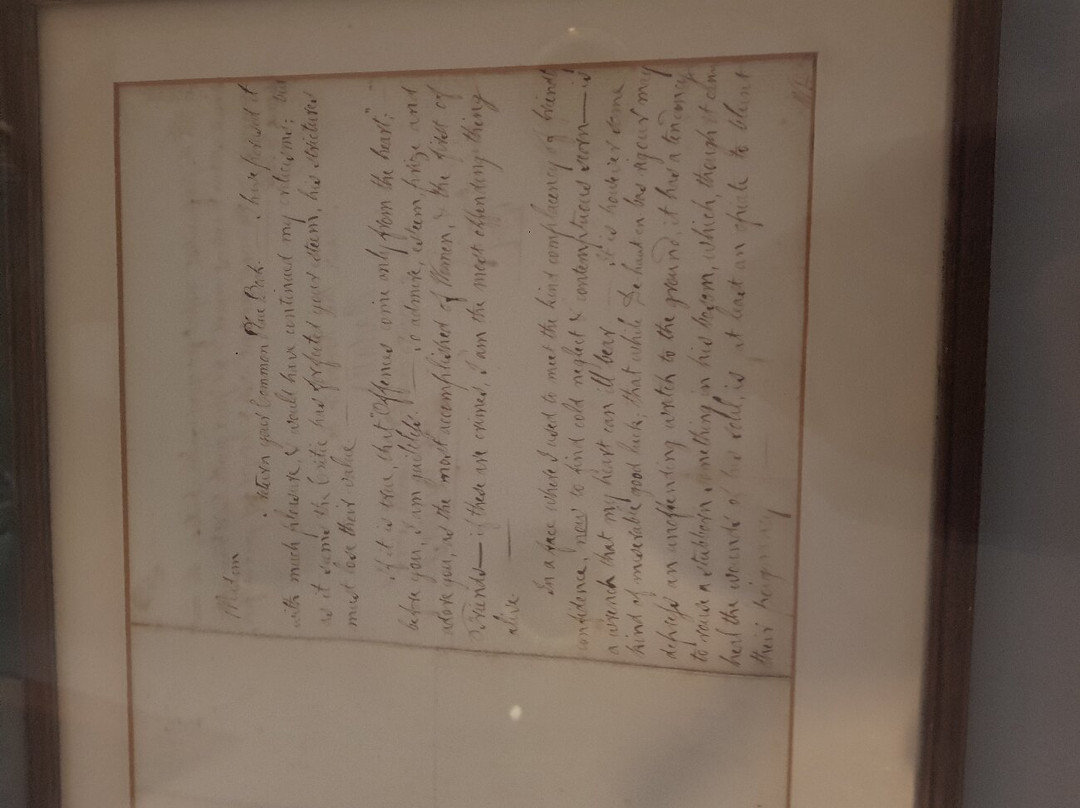 Madam
I return your Common Place Book — I have perused it
with much pleasure, & would have continued my criticisms; but
as it seems the Critic has forfeited your esteem, his strictures
must lose their value —
If it is true, that "Offences come only from the heart;"
before you, I am guiltless. — To admire, esteem, prize and
adore you, as the most accomplished of Women, & the first of
Friends — if these are crimes, I am the most offending thing
alive —
In a face where I used to meet the kind complacency of friendly
confidence, now to find cold neglect & contemptuous scorn — is
a wrench that my heart can ill bear — It is however some
kind of miserable good luck; that while De haut en bas rigour may
depress an unoffending wretch to the ground, it has a tendency
to rouse a stubborn something in his bosom, which, though it cannot
heal the wounds of his soul, is at least an opiate to blunt
their poignancy